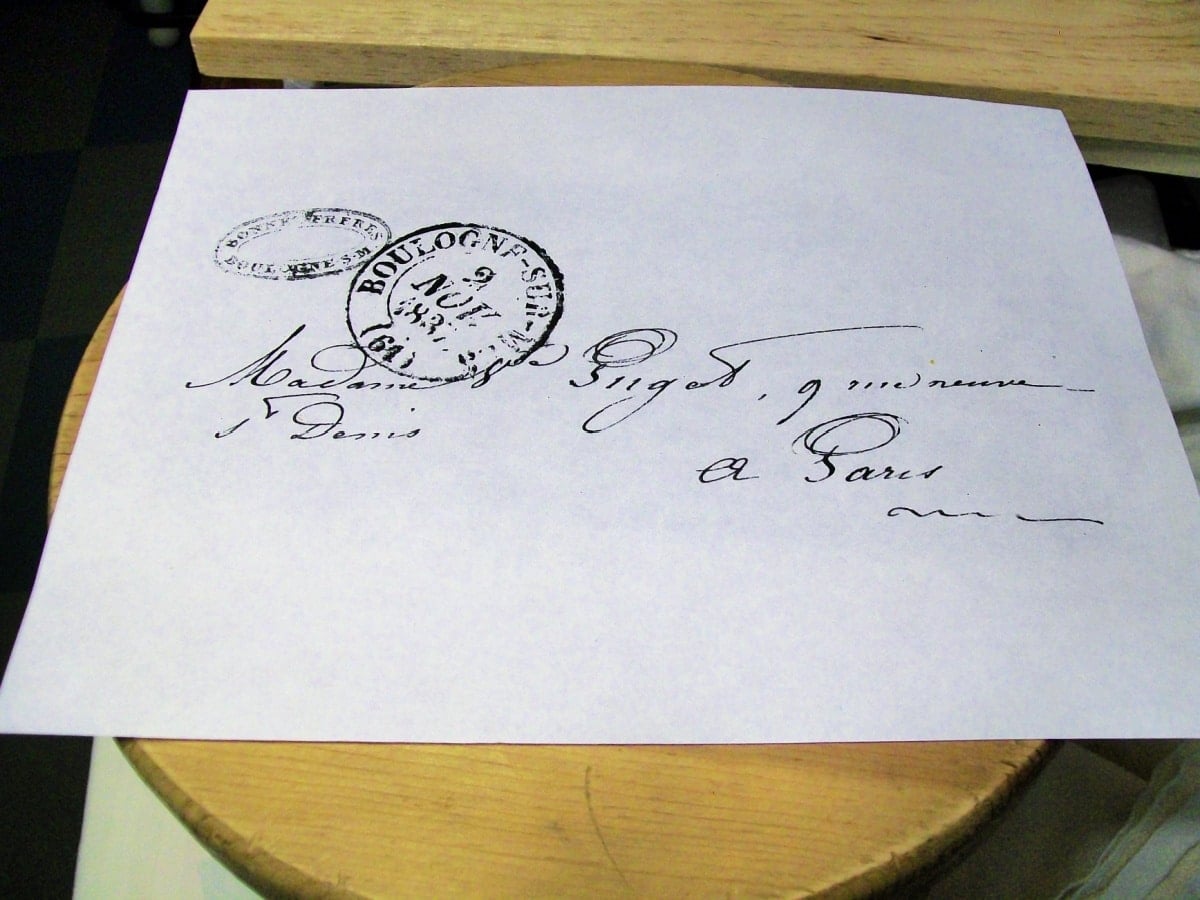 BONNE FRERES
BOULOGNE S.M
BOULOGNE-SUR-M
9
NOV
183
(61)
Madame Vve Puget, 9 rue neuve
St Denis
a Paris